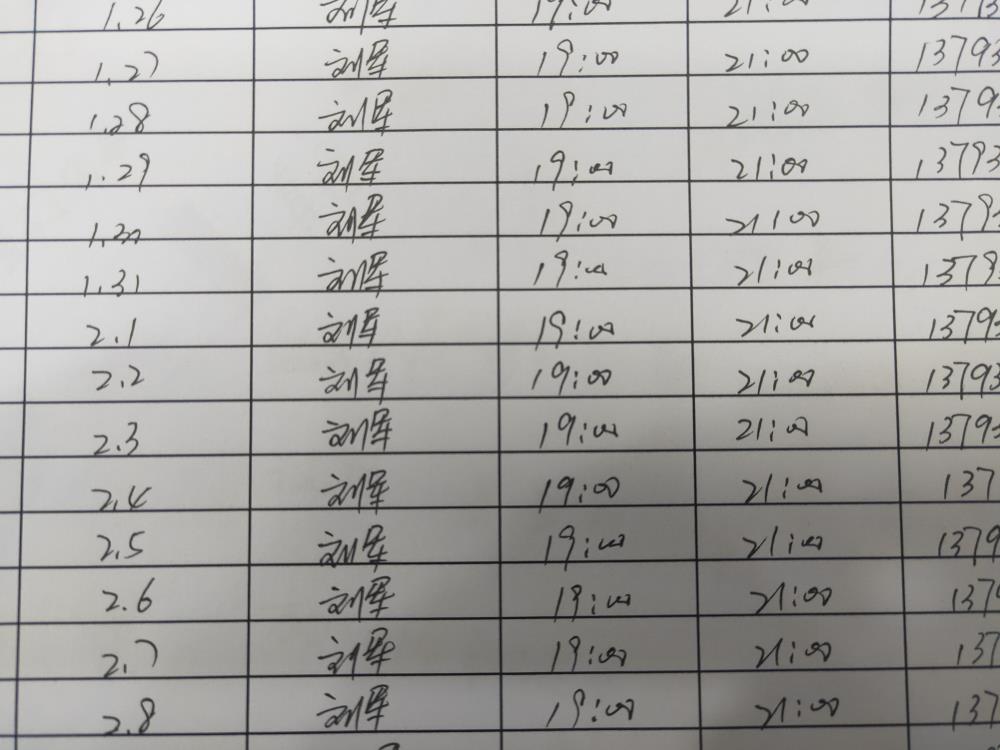 1.26 刘军 19:00 21:00 13793
1.27 刘军 19:00 21:00 13793
1.28 刘军 19:00 21:00 1379
1.29 刘军 19:00 21:00 13793
1.30 刘军 19:00 21:00 1379
1.31 刘军 19:00 21:00 1379
2.1 刘军 19:00 21:00 1379
2.2 刘军 19:00 21:00 13793
2.3 刘军 19:00 21:00 1379
2.4 刘军 19:00 21:00 137
2.5 刘军 19:00 21:00 1379
2.6 刘军 19:00 21:00 137
2.7 刘军 19:00 21:00 137
2.8 刘军 19:00 21:00 137